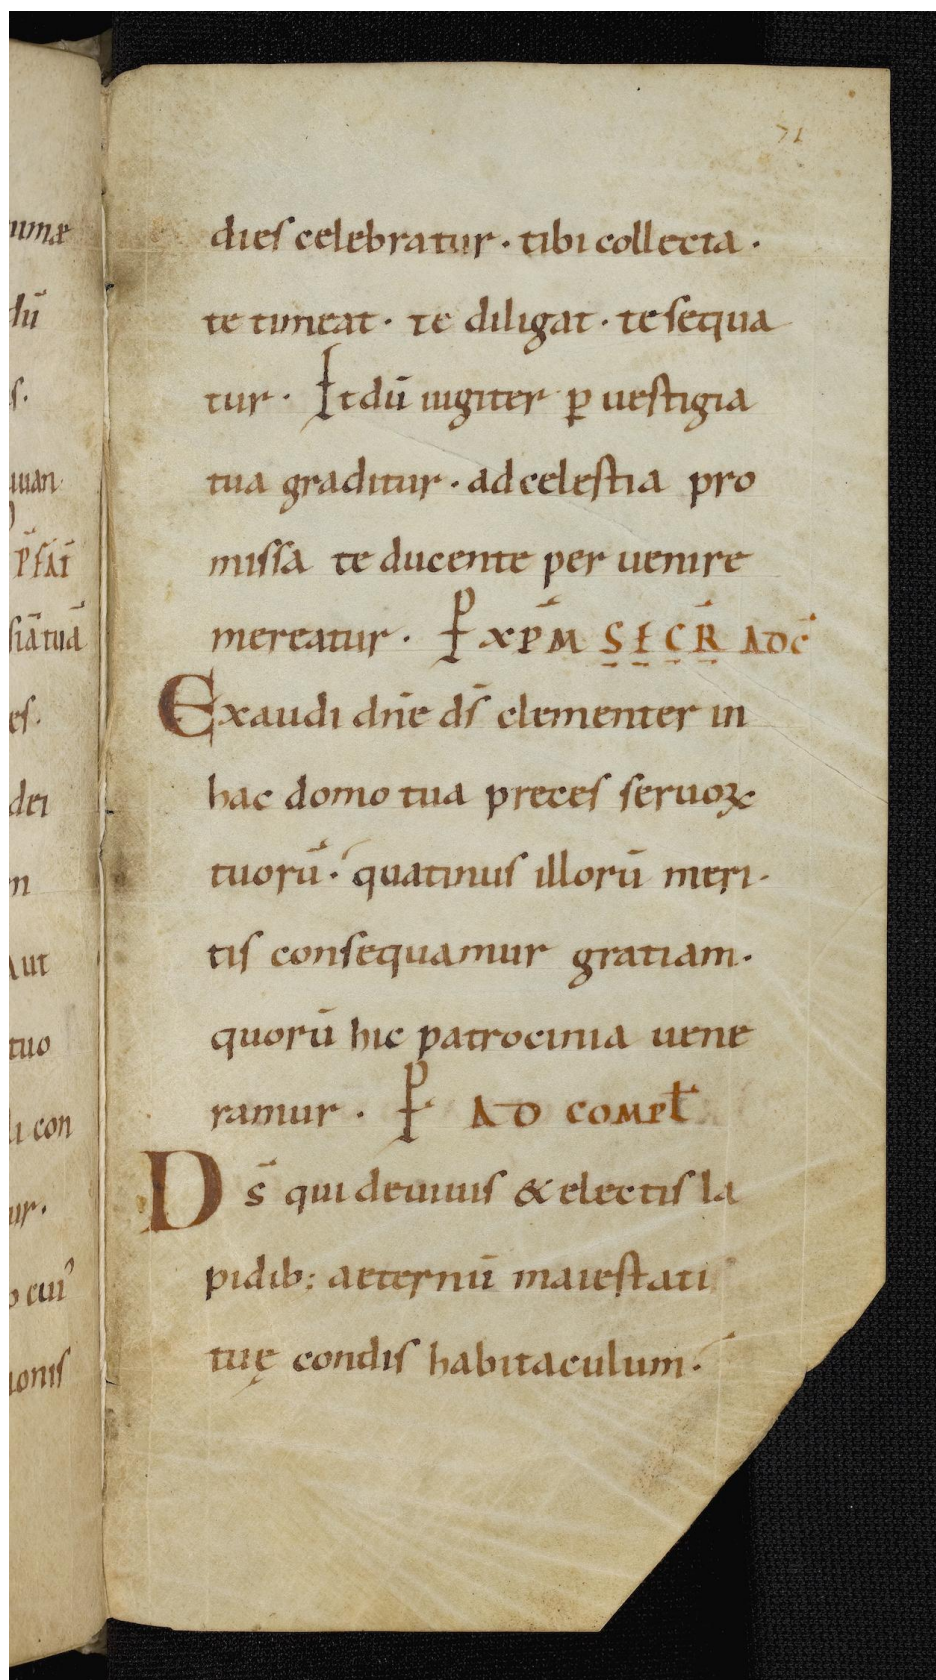 71
dies celebratur · tibi collecta ·
te timeat · te diligat · te sequa
tur · Et dū iugiter ꝑ uestigia
tua graditur · ad celestia pro
missa te ducente per uenire
mereatur · P XPM̄ SECR̄ ADC̄
Exaudi dn̄e ds̄ clementer in
hac domo tua preces seruoꝝ
tuorū · quatinus illorū meri·
tis consequamur gratiam·
quorū hic patrocinia uene
ramur · P AD COMPŁ
Ds̄ qui de uiuis & electis la
pidib: aeternū maiestati
tuę condis habitaculum·
umæ
dū
s·
uuan
P̄FAT̄
siātuā
es·
dei
m
Aut
tuo
u con
ur·
o cui᾽
ionis